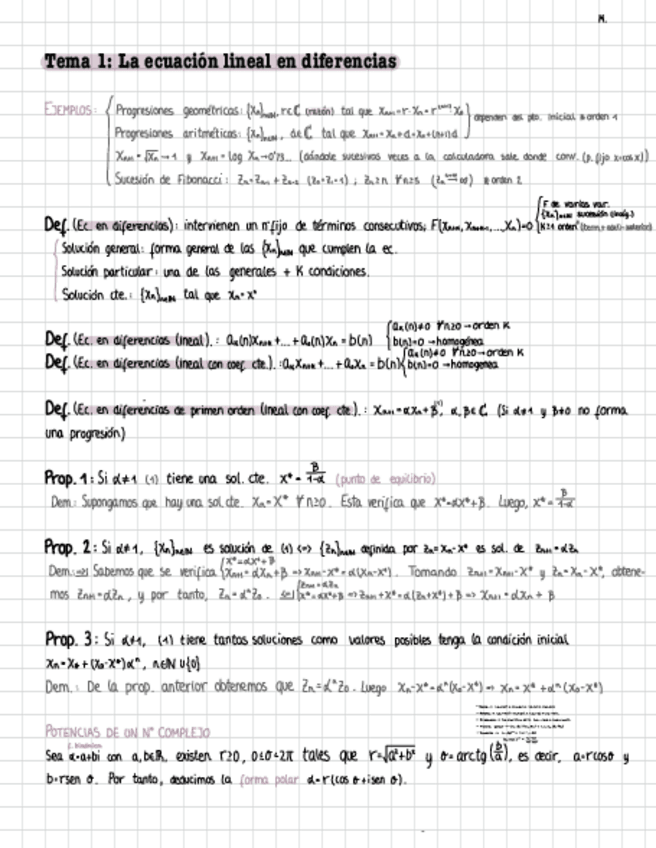 M.
Tema 1: La ecuación lineal en diferencias
EJEMPLOS: Progresiones geométricas: {Xn}n∈N, r∈ℂ (razón) tal que Xn+1=r·Xn=rⁿ⁺¹X₀ dependen del pto. inicial orden 1
Progresiones aritméticas: {Xn}n∈N, d∈ℂ tal que Xn+1=Xn+d=X₀+(n+1)d
Xn+1=√Xn→1 y Xn+1=log Xn→0'73... (dándole sucesivas veces a la calculadora sale donde conv. (p.fijo x=cosx))
Sucesión de Fibonacci: Zn=Zn-1+Zn-2 (Z₀=Z₁=1); Zn≥n ∀n≥5 (Zn→∞) orden 2
Def. (Ec. en diferencias): intervienen un nº fijo de términos consecutivos; F(Xn+k, Xn+k-1,...,Xn)=0 F de varias var. {Xn}n∈N sucesión K≥1 orden
Solución general: forma general de las {Xn}n∈N que cumplen la ec.
Solución particular: una de las generales + K condiciones.
Solución cte.: {Xn}n∈N tal que Xn=X*
Def. (Ec. en diferencias lineal).: aₖ(n)Xn+k+...+a₀(n)Xn = b(n) aₖ(n)≠0 ∀n≥0→orden K b(n)=0→homogénea
Def. (Ec. en diferencias lineal con coef. cte.).: aₖXn+k+...+a₀Xn = b(n) aₖ(n)≠0 ∀n≥0→orden K b(n)=0→homogenea
Def. (Ec. en diferencias de primer orden (lineal con coef. cte).: Xn+1=αXn+β⁽¹⁾, α,β∈ℂ (Si α≠1 y β≠0 no forma
una progresión)
Prop. 1: Si α≠1 (1) tiene una sol. cte. X*= β/1-α (punto de equilibrio)
Dem.: Supongamos que hay una sol.cte. Xn=X* ∀n≥0. Esta verifica que X*=αX*+β. Luego, X*= β/1-α
Prop. 2: Si α≠1, {Xn}n∈N es solución de (1) <=> {Zn}n∈N definida por Zn=Xn-X* es sol. de Zn+1=αZn
Dem.: =>| Sabemos que se verifica {X*=αX*+β Xn+1=αXn+β => Xn+1-X*=α(Xn-X*). Tomando Zn+1=Xn+1-X* y Zn=Xn-X*, obtene-
mos Zn+1=αZn, y por tanto, Zn=αⁿZ₀. <=| {Zn+1=αZn X*=αX*+β => Zn+1+X*=α(Zn+X*)+β => Xn+1=αXn+β
Prop. 3: Si α≠1, (1) tiene tantas soluciones como valores posibles tenga la condición inicial
Xn=X*+(X₀-X*)αⁿ, n∈N∪{0}
Dem.: De la prop. anterior obtenemos que Zn=αⁿZ₀. Luego Xn-X*=αⁿ(X₀-X*) => Xn=X*+αⁿ(X₀-X*)
POTENCIAS DE UN Nº COMPLEJO
Sea α=a+bi con a,b∈ℝ, existen r≥0, 0≤σ<2π tales que r=√a²+b² y σ=arctg(b/a), es decir, a=rcosσ y
b=rsen σ. Por tanto, deducimos la forma polar α=r(cos σ+isen σ).